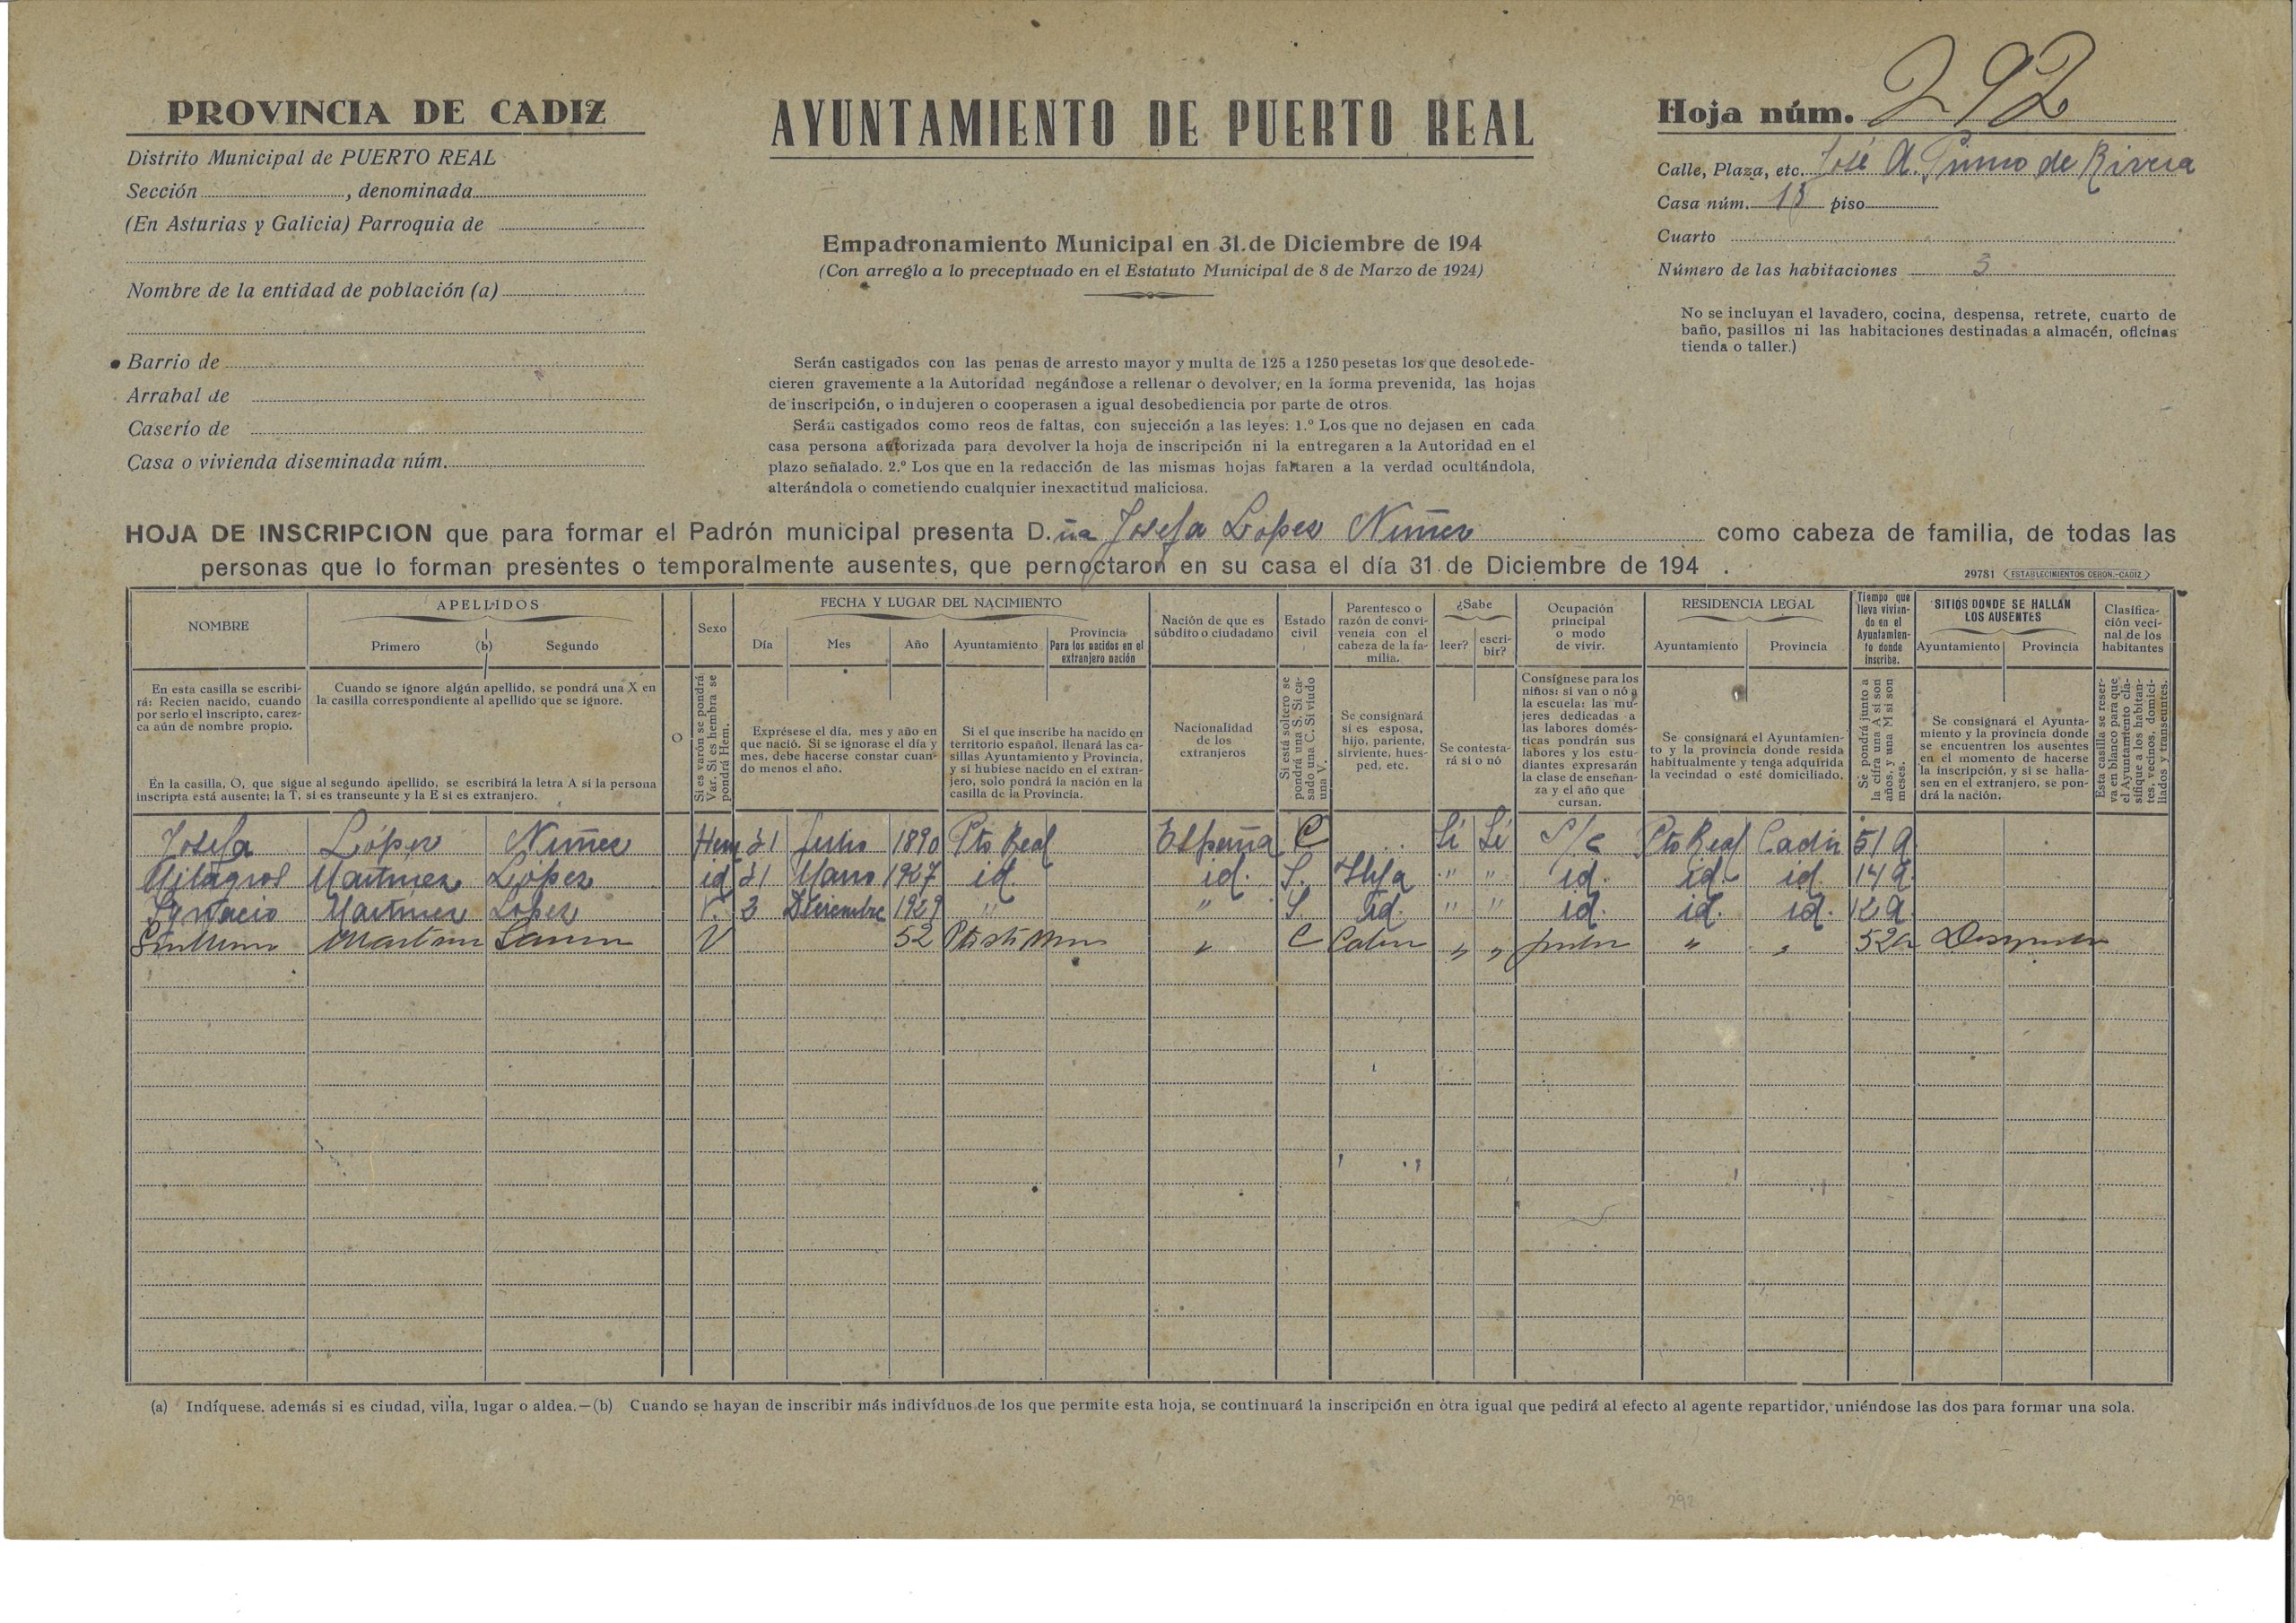 PROVINCIA DE CADIZ
Distrito Municipal de PUERTO REAL
Sección , denominada
(En Asturias y Galicia) Parroquia de
Nombre de la entidad de población (a)
Barrio de
Arrabal de
Caserío de
Casa o vivienda diseminada núm.
AYUNTAMIENTO DE PUERTO REAL
Empadronamiento Municipal en 31 de Diciembre de 194
(Con arreglo a lo preceptuado en el Estatuto Municipal de 8 de Marzo de 1924)
Serán castigados con las penas de arresto mayor y multa de 125 a 1250 pesetas los que desobede-
cieren gravemente a la Autoridad negándose a rellenar o devolver, en la forma prevenida, las hojas
de inscripción, o indujeren o cooperasen a igual desobediencia por parte de otros.
Serán castigados como reos de faltas, con sujección a las leyes: 1.º Los que no dejasen en cada
casa persona autorizada para devolver la hoja de inscripción ni la entregaren a la Autoridad en el
plazo señalado. 2.º Los que en la redacción de las mismas hojas faltaren a la verdad ocultándola,
alterándola o cometiendo cualquier inexactitud maliciosa.
Hoja núm. 292
Calle, Plaza, etc. José A. Primo de Rivera
Casa núm. piso
Cuarto
Número de las habitaciones 3
No se incluyan el lavadero, cocina, despensa, retrete, cuarto de
baño, pasillos ni las habitaciones destinadas a almacén, oficinas
tienda o taller.)
HOJA DE INSCRIPCION que para formar el Padrón municipal presenta D.ña Josefa Lopez Nuñez como cabeza de familia, de todas las
personas que lo forman presentes o temporalmente ausentes, que pernoctaron en su casa el día 31 de Diciembre de 194 .
29781 ESTABLECIMIENTOS CERON.-CADIZ
NOMBRE
APELLIDOS
Primero (b) Segundo
O
Sexo
FECHA Y LUGAR DEL NACIMIENTO
Día Mes Año Ayuntamiento
Provincia
Para los nacidos en el
extranjero nación
Nación de que es
súbdito o ciudadano
Estado
civil
Parentesco o
razón de convi-
vencia con el
cabeza de la fa-
milia.
¿Sabe
leer? escri-
bir?
Ocupación
principal
o modo
de vivir.
RESIDENCIA LEGAL
Ayuntamiento Provincia
Tiempo que
lleva vivien-
do en el
Ayuntamien-
to donde
inscribe.
SITIOS DONDE SE HALLAN
LOS AUSENTES
Ayuntamiento Provincia
Clasifica-
ción veci-
nal de los
habitantes
En esta casilla se escribi-
rá: Recien nacido, cuando
por serlo el inscripto, carez-
ca aún de nombre propio.
Cuando se ignore algún apellido, se pondrá una X en
la casilla correspondiente al apellido que se ignore.
En la casilla, O, que sigue al segundo apellido, se escribirá la letra A si la persona
inscripta está ausente; la T, si es transeunte y la E si es extranjero.
Si es varón se pondrá
Var. Si es hembra se
pondrá Hem.
Exprésese el día, mes y año en
que nació. Si se ignorase el día y
mes, debe hacerse constar cuan-
do menos el año.
Si el que inscribe ha nacido en
territorio español, llenará las ca-
sillas Ayuntamiento y Provincia,
y si hubiese nacido en el extran-
jero, solo pondrá la nación en la
casilla de la Provincia.
Nacionalidad
de los
extranjeros
Si está soltero se
pondrá una S. Si ca-
sado una C. Si viudo
una V.
Se consignará
si es esposa,
hijo, pariente,
sirviente, hues-
ped, etc.
Se contesta-
rá si o nó
Consígnese para los
niños: si van o nó a
la escuela: las mu-
jeres dedicadas a
las labores domés-
ticas pondrán sus
labores y los estu-
diantes expresarán
la clase de enseñan-
za y el año que
cursan.
Se consignará el Ayuntamien-
to y la provincia donde resida
habitualmente y tenga adquirida
la vecindad o esté domiciliado.
Se pondrá junto a
la cifra una A si son
años, y una M si son
meses.
Se consignará el Ayunta-
miento y la provincia donde
se encuentren los ausentes
en el momento de hacerse
la inscripción, y si se halla-
sen en el extranjero, se pon-
drá la nación.
Esta casilla se reser-
va en blanco para que
el Ayuntamiento cla-
sifique a los habitan-
tes, vecinos, domici-
liados y transeuntes.
Josefa López Nuñez Hem 21 Julio 1890 Pto Real España C Si Si S/c Pto Real Cadiz 51 A
Milagros Martinez López id 21 Marzo 1927 id. id. S. Hija " " id. id. id. 14 A.
Ignacio Martinez Lopez V. 3 Diciembre 1929 " " S. id. " " id. id. id. 12 A.
Martinez V 52 " C " " " " 52 a
(a) Indíquese, además si es ciudad, villa, lugar o aldea.—(b) Cuando se hayan de inscribir más indivíduos de los que permite esta hoja, se continuará la inscripción en otra igual que pedirá al efecto al agente repartidor, uniéndose las dos para formar una sola.
292